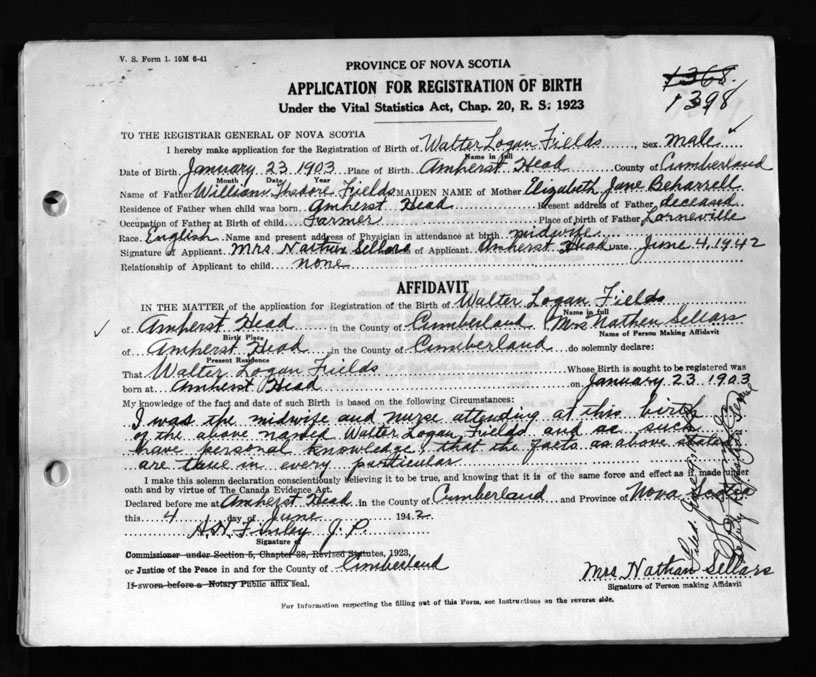 V. S. Form 1. 10M 6-41
PROVINCE OF NOVA SCOTIA
APPLICATION FOR REGISTRATION OF BIRTH
Under the Vital Statistics Act, Chap. 20, R. S. 1923
1368.
1398
TO THE REGISTRAR GENERAL OF NOVA SCOTIA
I hereby make application for the Registration of Birth of Walter Logan Fields, Sex Male
Name in full
Date of Birth January 23 1903 Place of Birth Amherst Head County of Cumberland
Month Date Year
Name of Father William Thedore Fields MAIDEN NAME of Mother Elizabeth Jane Beharrell
Residence of Father when child was born Amherst Head Present address of Father deceased
Occupation of Father at Birth of child Farmer Place of birth of Father Lorneville
Race English Name and present address of Physician in attendance at birth midwife
Signature of Applicant Mrs Nathan Sellars of Applicant Amherst Head Date June 4, 1942
Relationship of Applicant to child none
AFFIDAVIT
IN THE MATTER of the application for Registration of the Birth of Walter Logan Fields
Name in full
of Amherst Head in the County of Cumberland Mrs Nathen Sellars
Birth Place Name of Person Making Affidavit
of Amherst Head in the County of Cumberland do solemnly declare:
Present Residence
That Walter Logan Fields Whose Birth is sought to be registered was
born at Amherst Head on January 23 1903
My knowledge of the fact and date of such Birth is based on the following Circumstances:
I was the midwife and nurse attending at this birth
of the above named Walter Logan Fields and as such
have personal knowledge, that the facts as above stated
are true in every particular
I make this solemn declaration conscientiously believing it to be true, and knowing that it is of the same force and effect as if made under
oath and by virtue of The Canada Evidence Act.
Declared before me at Amherst Head in the County of Cumberland and Province of Nova Scotia
this 4 day of June 1942
J. P.
Signature of
Commissioner under Section 5, Chapter 38, Revised Statutes, 1923,
or Justice of the Peace in and for the County of Cumberland
If sworn before a Notary Public affix seal.
Mrs Nathan Sellars
Signature of Person making Affidavit
For Information respecting the filling out of this Form, see Instructions on the reverse side.